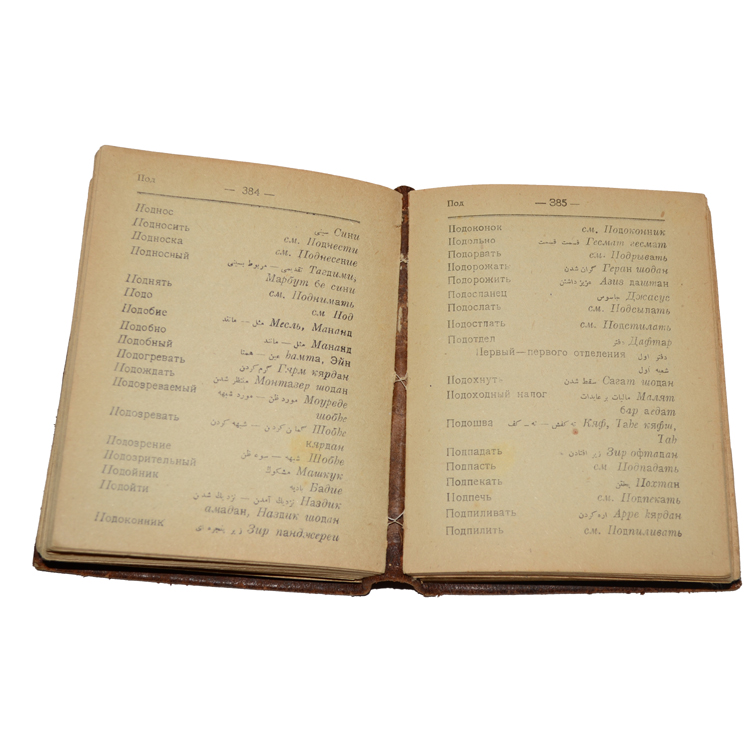 Пол
— 384 —
Поднос سینی Сини
Подносить см. Подчести
Подноска см. Поднесение
Подносный تقدسی — مربوط بسینی Тагдими,
Марбут бе сини
Поднять см. Поднимать
Подо см. Под
Подобие مثل — مانند Месль, Мананд
Подобно مثل — مانند Мананд
Подобный عین — همتا hамта, Эйн
Подогревать گرم کردن Гярм кярдан
Подождать منتظر شدن Монтазер шодан
Подозреваемый مورد ظن — مورد شبهه Моуреде
шобhе
Подозревать گمان کردن — شبهه کردن Шобhе
кярдан
Подозрение شبهه — سوء ظن Шобhе
Подозрительный مشکوک Машкук
Подойник بادیه Бадие
Подойти نزدیک آمدن — نزدیک شدن Наздик
амадан, Наздик шодан
Подоконник زیر پنجره‌ی Зир панджереи
Пол
— 385 —
Подоконок см. Подоконник
Подольно قسمت قسمت Гесмат гесмат
Подорвать см. Подрывать
Подорожать گران شدن Геран шодан
Подорожить عزیز داشتن Азиз даштан
Подосланец جاسوس Джасус
Подослать см. Подсылать
Подостлать см. Подстилать
Подотдел دفتر Дафтар
Первый—первого отделения دفتر اول
شعبه اول
Подохнут- سقط شدن Сагат шодан
Подоходный налог مالیات بر عایدات Малят
бар аедат
Подошва ته کفش — ته — کف Кяф, Таhе кяфш,
Таh
Подпадать زیر افتادن Зир офтадан
Подпасть см Подпадать
Подпекать پختن Похтан
Подпечь см. Подпекать
Подпиливать اره کردن Арре кярдан
Подпилить см. Подпиливать